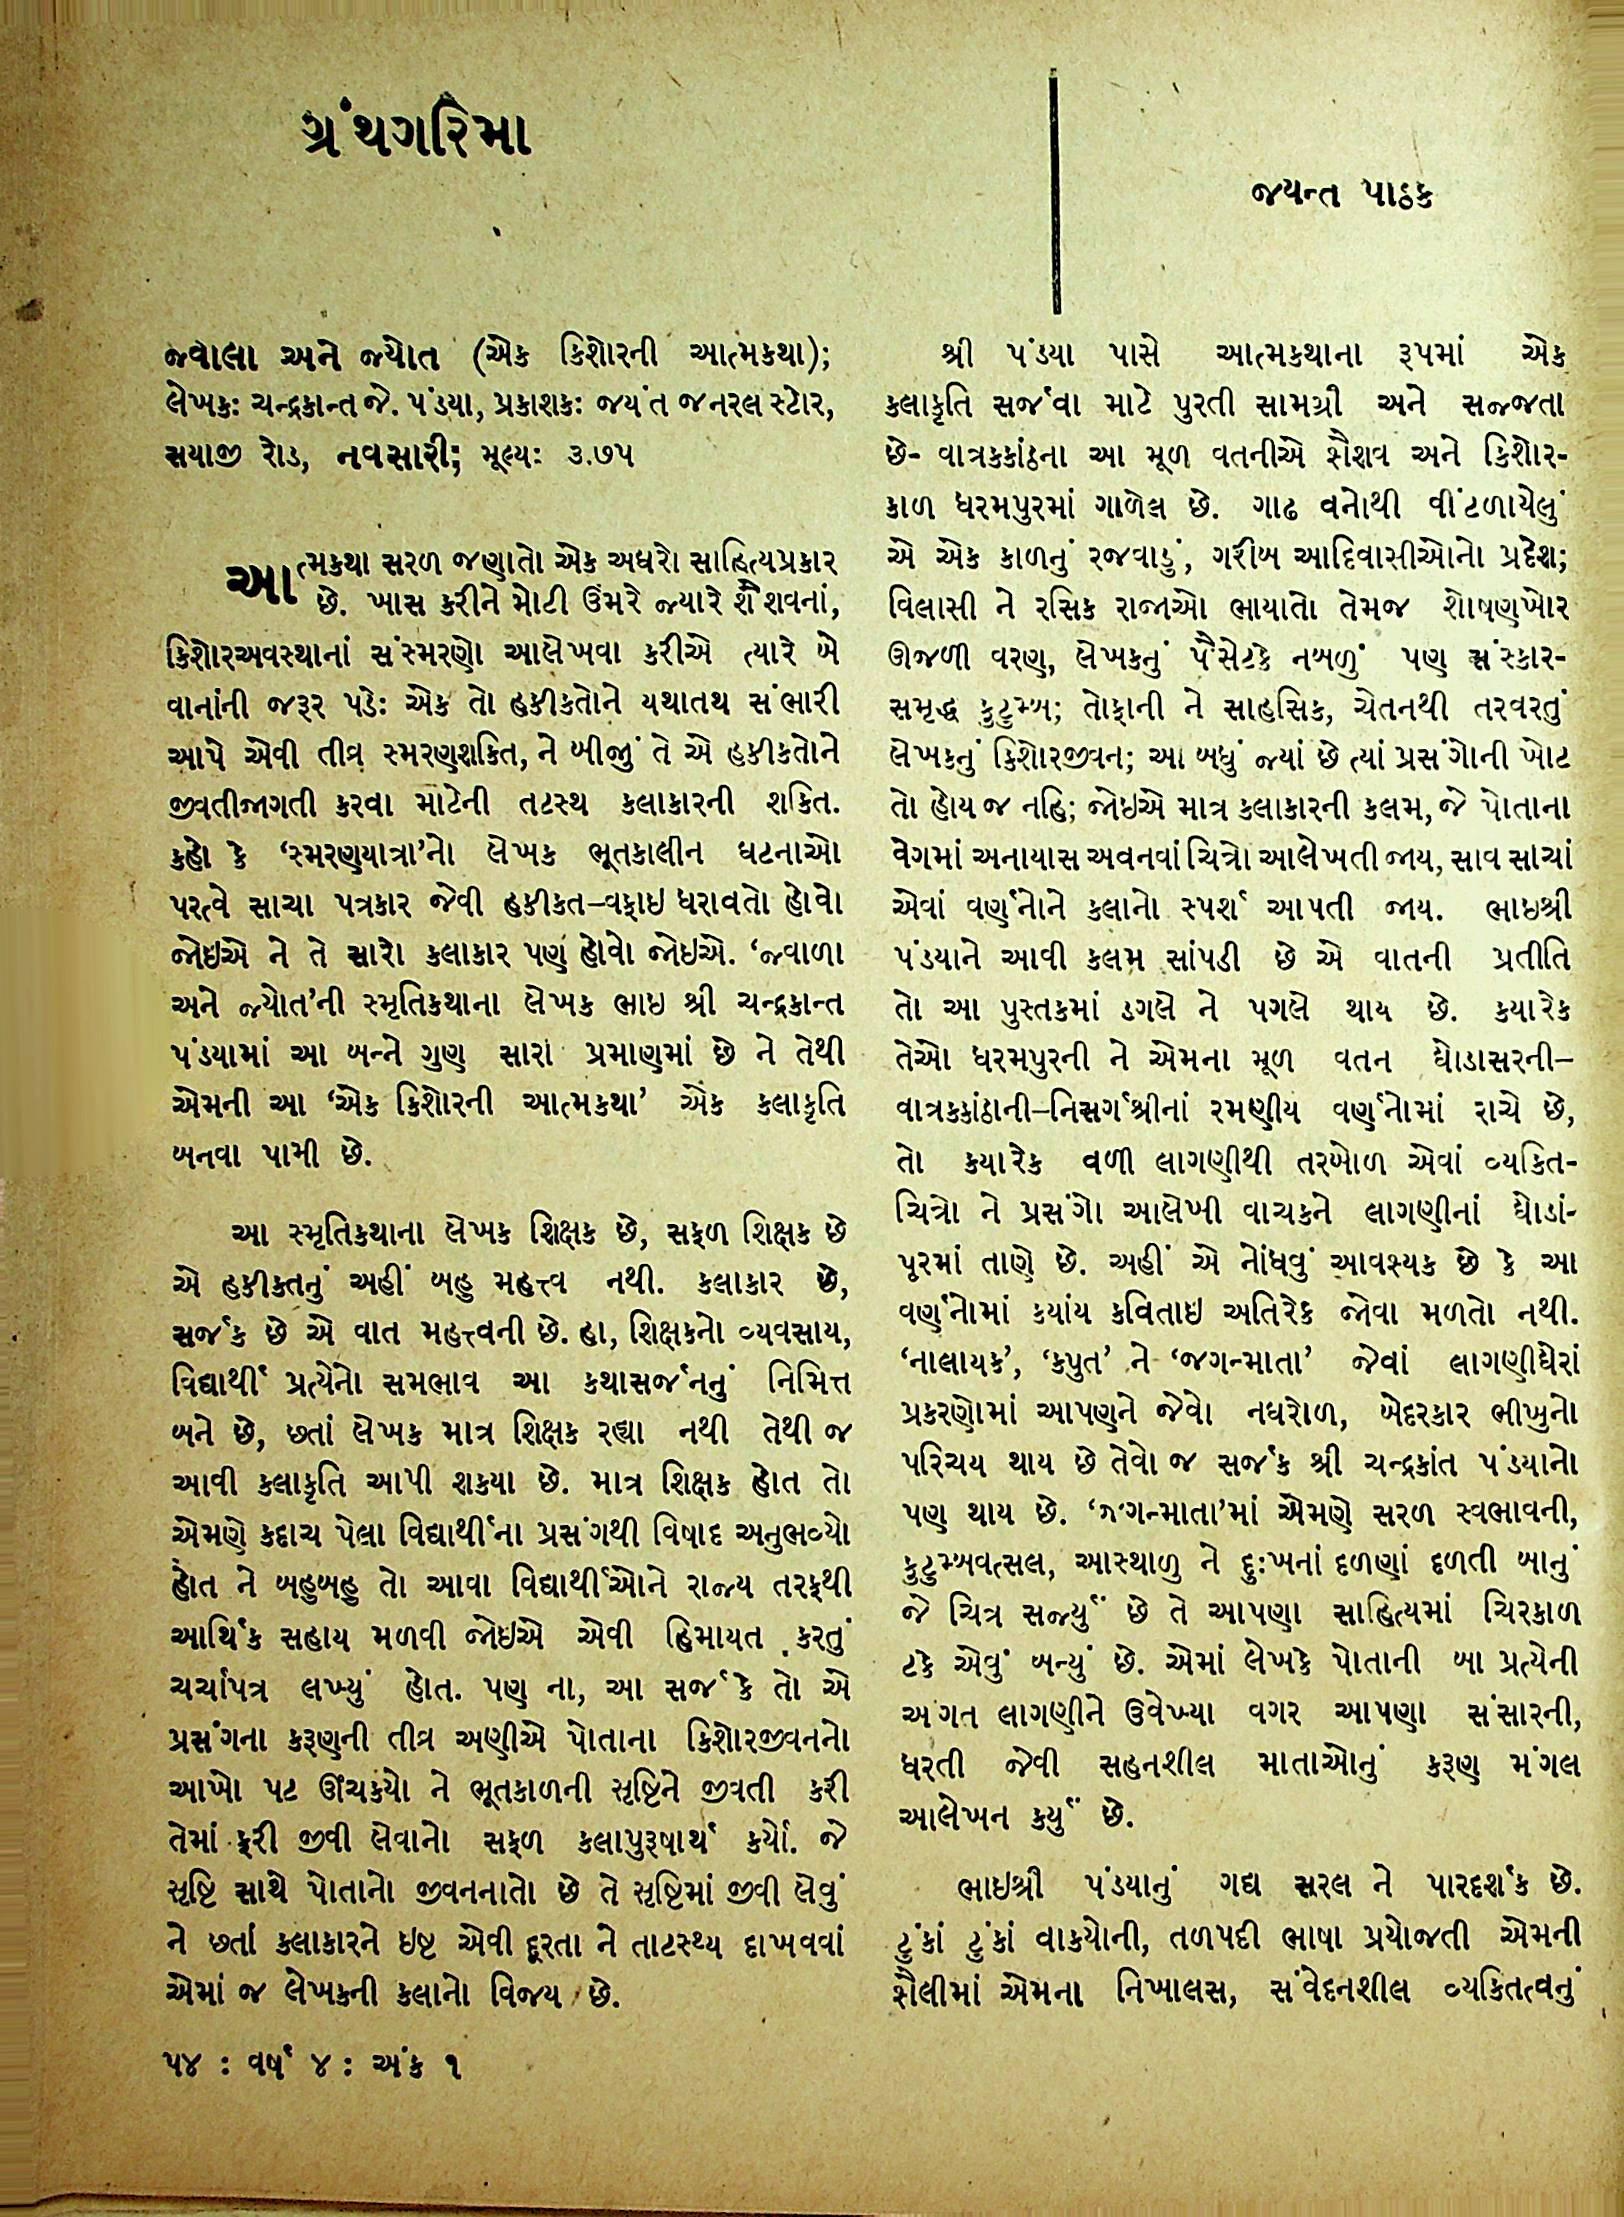 ગ્રંથગરિમા
જયન્ત પાઠક
જ્વાલા અને જ્યોત (એક કિશોરની આત્મકથા);
લેખકઃ ચન્દ્રકાન્ત જે. પંડયા, પ્રકાશકઃ જયંત જનરલ સ્ટોર,
સયાજી રોડ, નવસારી; મૂલ્યઃ ૩.૭૫
આત્મકથા સરળ જણાતો એક અઘરો સાહિત્યપ્રકાર
છે. ખાસ કરીને મોટી ઉંમરે જ્યારે શૈશવનાં,
કિશોરઅવસ્થાનાં સંસ્મરણો આલેખવા કરીએ ત્યારે બે
વાનાંની જરૂર પડેઃ એક તો હકીકતોને યથાતથ સંભારી
આપે એવી તીવ્ર સ્મરણશકિત, ને બીજું તે એ હકીકતોને
જીવતીજાગતી કરવા માટેની તટસ્થ કલાકારની શકિત.
કહો કે ‘સ્મરણયાત્રા’નો લેખક ભૂતકાલીન ઘટનાઓ
પરત્વે સાચા પત્રકાર જેવી હકીકત–વફાઇ ધરાવતો હોવો
જોઇએ ને તે સારો કલાકાર પણ હોવો જોઇએ. ‘જ્વાળા
અને જ્યોત’ની સ્મૃતિકથાના લેખક ભાઇ શ્રી ચન્દ્રકાન્ત
પંડયામાં આ બન્ને ગુણ સારા પ્રમાણમાં છે ને તેથી
એમની આ ‘એક કિશોરની આત્મકથા’ એક કલાકૃતિ
બનવા પામી છે.
આ સ્મૃતિકથાના લેખક શિક્ષક છે, સફળ શિક્ષક છે
એ હકીકતનું અહીં બહુ મહત્ત્વ નથી. કલાકાર છે,
સર્જક છે એ વાત મહત્ત્વની છે. હા, શિક્ષકનો વ્યવસાય,
વિદ્યાર્થી પ્રત્યેનો સમભાવ આ કથાસર્જનનું નિમિત્ત
બને છે, છતાં લેખક માત્ર શિક્ષક રહ્યા નથી તેથી જ
આવી કલાકૃતિ આપી શકયા છે. માત્ર શિક્ષક હોત તો
એમણે કદાચ પેલા વિદ્યાર્થીના પ્રસંગથી વિષાદ અનુભવ્યો
હોત ને બહુબહુ તો આવા વિદ્યાર્થીઓને રાજ્ય તરફથી
આર્થિક સહાય મળવી જોઇએ એવી હિમાયત કરતું
ચર્ચાપત્ર લખ્યું હોત. પણ ના, આ સર્જકે તો એ
પ્રસંગના કરૂણની તીવ્ર અણીએ પોતાના કિશોરજીવનનો
આખો પટ ઊંચકયો ને ભૂતકાળની સૃષ્ટિને જીવતી કરી
તેમાં ફરી જીવી લેવાનો સફળ કલાપુરુષાર્થ કર્યો. જે
સૃષ્ટિ સાથે પોતાનો જીવનનાતો છે તે સૃષ્ટિમાં જીવી લેવું
ને છતાં કલાકારને ઇષ્ટ એવી દૂરતા ને તાટસ્થ્ય દાખવવાં
એમાં જ લેખકની કલાનો વિજય છે.
૫૪ : વર્ષ ૪ : અંક ૧
શ્રી પંડયા પાસે આત્મકથાના રૂપમાં એક
કલાકૃતિ સર્જવા માટે પુરતી સામગ્રી અને સજ્જતા
છે- વાત્રકકાંઠના આ મૂળ વતનીએ શૈશવ અને કિશોર-
કાળ ધરમપુરમાં ગાળેલ છે. ગાઢ વનોથી વીંટળાયેલું
એ એક કાળનું રજવાડું, ગરીબ આદિવાસીઓનો પ્રદેશ;
વિલાસી ને રસિક રાજાઓ ભાયાતો તેમજ શોષણખોર
ઊજળી વરણ, લેખકનું પૈસેટકે નબળું પણ સંસ્કાર-
સમૃદ્ધ કુટુમ્બ; તોફાની ને સાહસિક, ચેતનથી તરવરતું
લેખકનું કિશોરજીવન; આ બધું જ્યાં છે ત્યાં પ્રસંગોની ખોટ
તો હોય જ નહિ; જોઇએ માત્ર કલાકારની કલમ, જે પોતાના
વેગમાં અનાયાસ અવનવાં ચિત્રો આલેખતી જાય, સાવ સાચાં
એવાં વર્ણનોને કલાનો સ્પર્શ આપતી જાય. ભાઇશ્રી
પંડયાને આવી કલમ સાંપડી છે એ વાતની પ્રતીતિ
તો આ પુસ્તકમાં ડગલે ને પગલે થાય છે. કયારેક
તેઓ ધરમપુરની ને એમના મૂળ વતન ઘોડાસરની–
વાત્રકકાંઠાની–નિસર્ગશ્રીનાં રમણીય વર્ણનોમાં રાચે છે,
તો કયારેક વળી લાગણીથી તરબોળ એવાં વ્યકિત-
ચિત્રો ને પ્રસંગો આલેખી વાચકને લાગણીનાં ઘોડાં-
પૂરમાં તાણે છે. અહીં એ નોંધવું આવશ્યક છે કે આ
વર્ણનોમાં કયાંય કવિતાઇ અતિરેક જોવા મળતો નથી.
‘નાલાયક’, ‘કપુત’ ને ‘જગન્માતા’ જેવાં લાગણીઘેરાં
પ્રકરણોમાં આપણને જેવો નઘરોળ, બેદરકાર ભીખુનો
પરિચય થાય છે તેવો જ સર્જક શ્રી ચન્દ્રકાંત પંડયાનો
પણ થાય છે. ‘જગન્માતા’માં એમણે સરળ સ્વભાવની,
કુટુમ્બવત્સલ, આસ્થાળુ ને દુઃખનાં દળણાં દળતી બાનું
જે ચિત્ર સર્જ્યું છે તે આપણા સાહિત્યમાં ચિરકાળ
ટકે એવું બન્યું છે. એમાં લેખકે પોતાની બા પ્રત્યેની
અંગત લાગણીને ઉવેખ્યા વગર આપણા સંસારની,
ધરતી જેવી સહનશીલ માતાઓનું કરૂણ મંગલ
આલેખન કર્યું છે.
ભાઇશ્રી પંડયાનું ગદ્ય સરલ ને પારદર્શક છે.
ટુંકાં ટુંકાં વાકયોની, તળપદી ભાષા પ્રયોજતી એમની
શૈલીમાં એમના નિખાલસ, સંવેદનશીલ વ્યકિતત્વનું